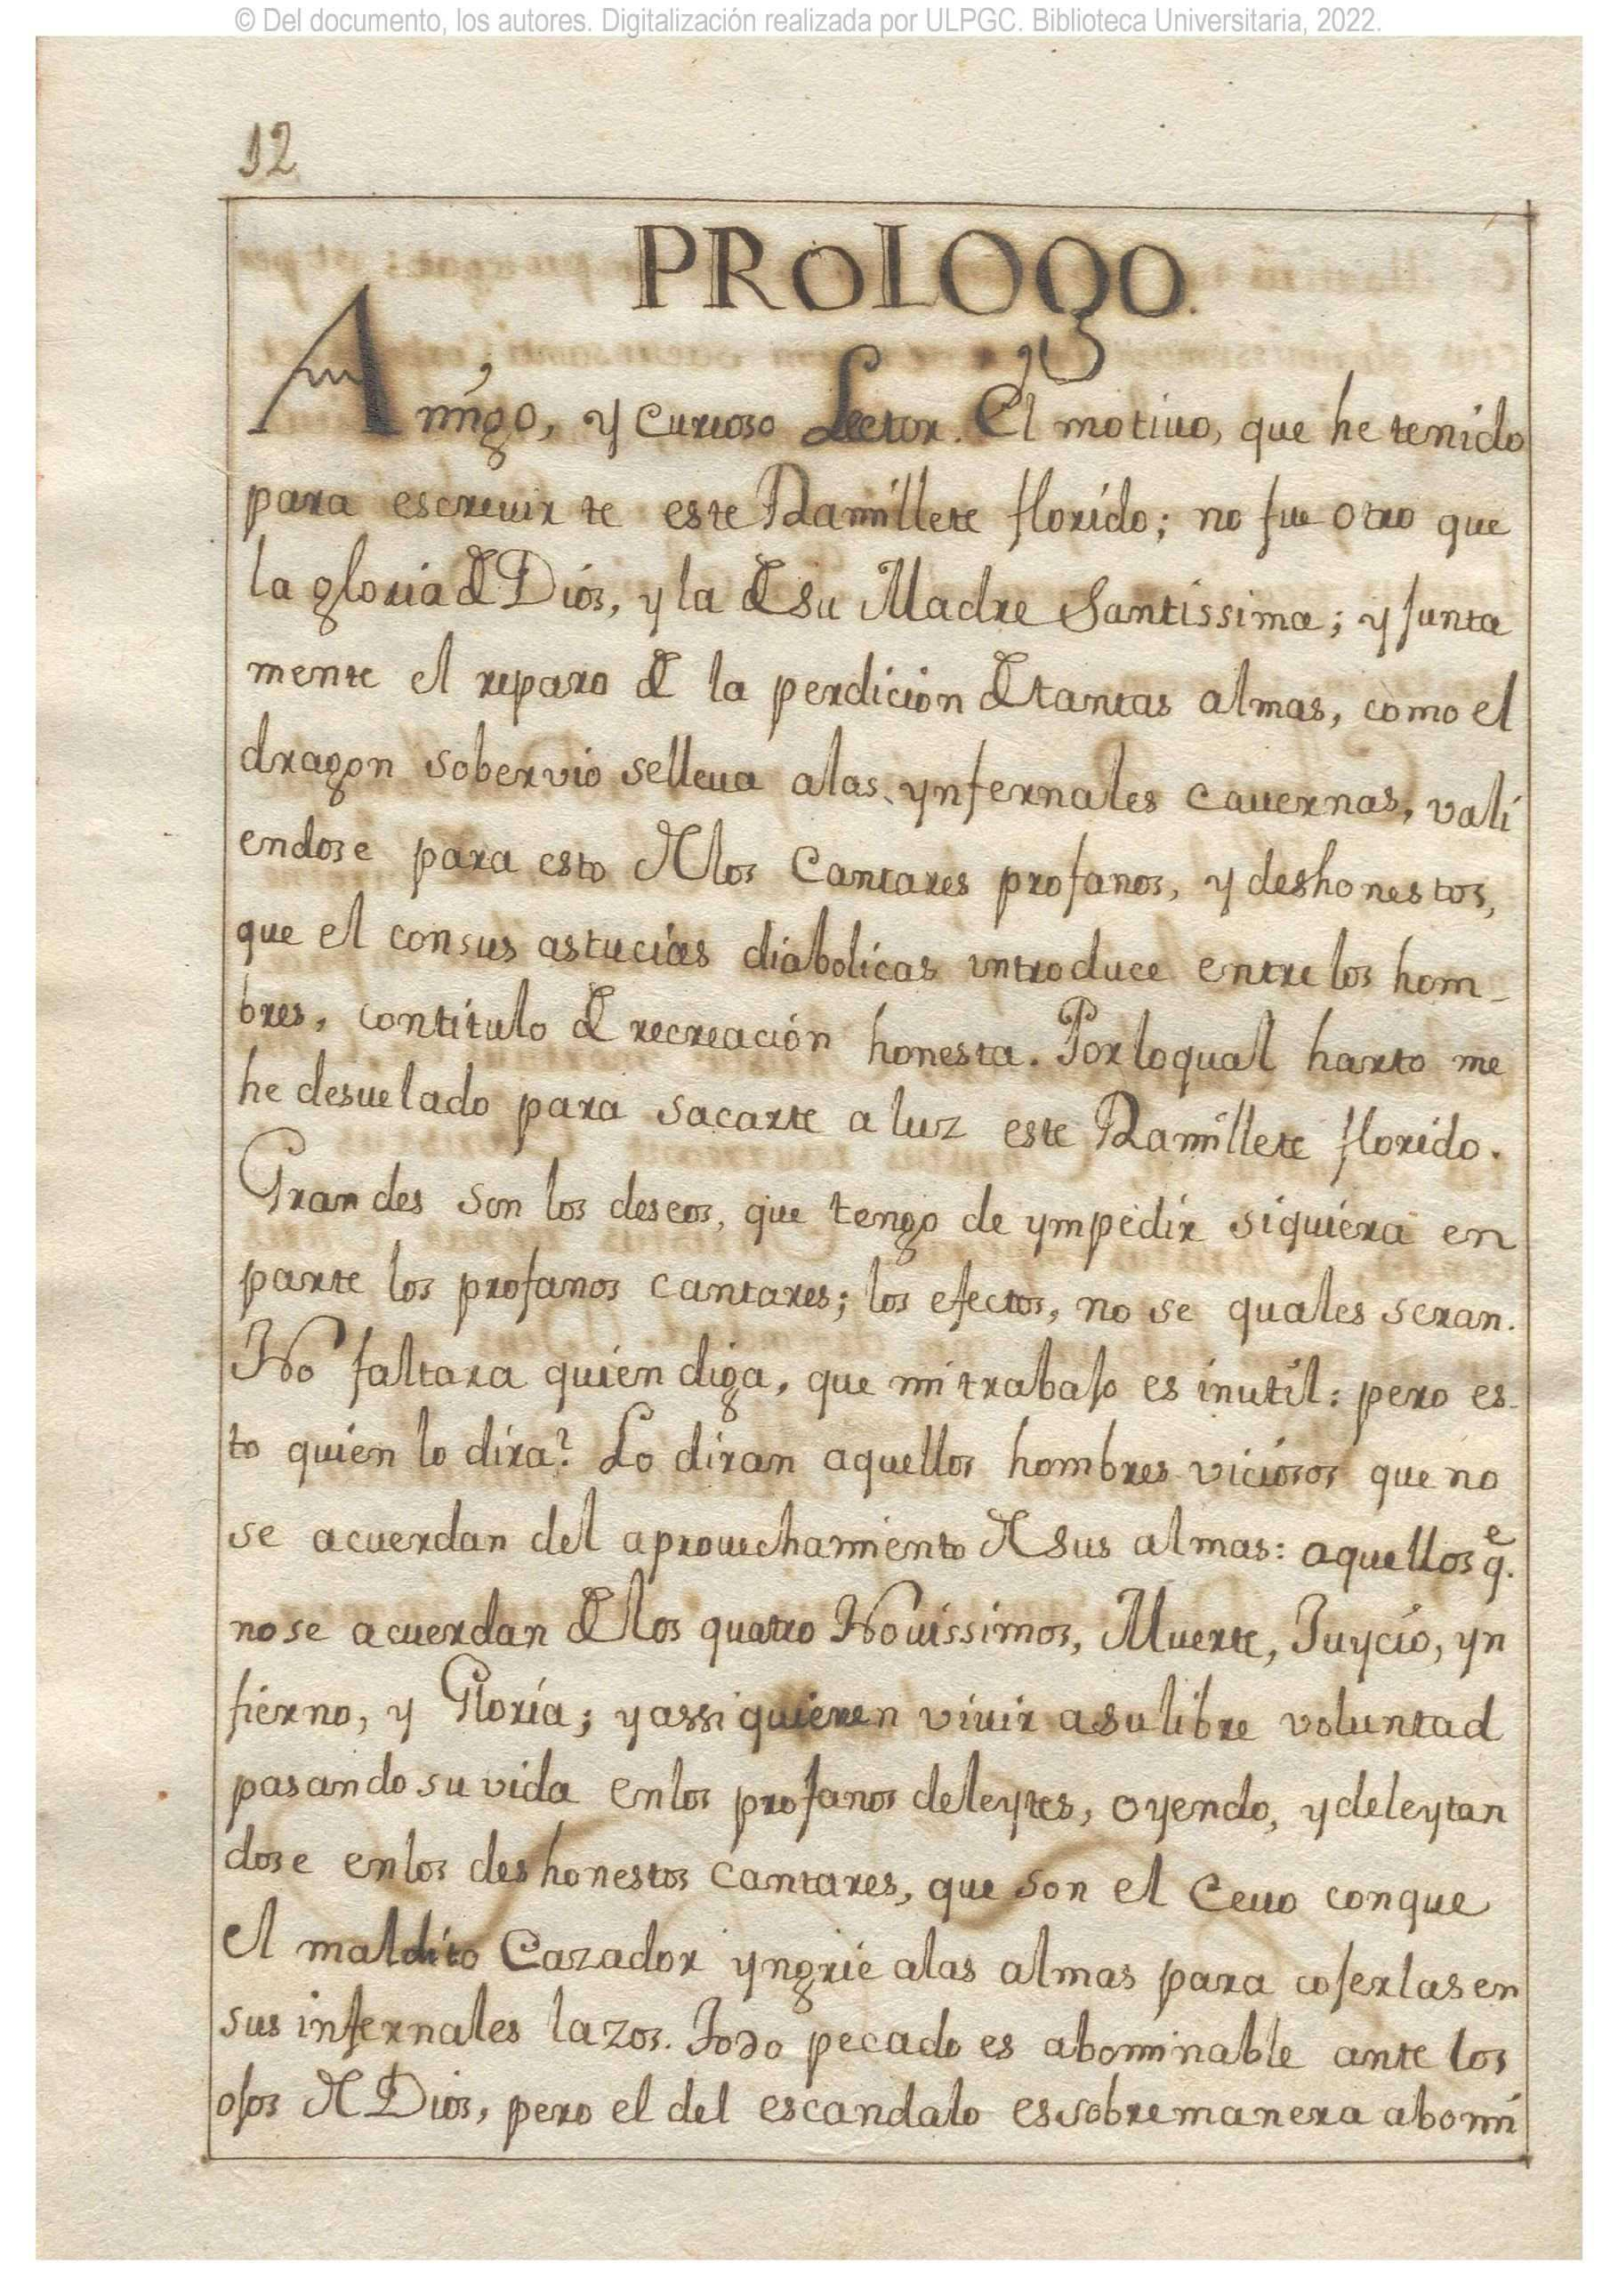 © Del documento, los autores. Digitalización realizada por ULPGC. Biblioteca Universitaria, 2022.
12
PROLOgO.
Amigo, y curioso Lector. El motiuo, que he tenido
para escreuir te este Ramillete florido; no fue otro que
la gloria de Dios, y la de su Madre Santissima; y junta
mente el reparo de la perdicion de tantas almas, como el
dragon sobervio selleua alas ynfernales cauernas, vali
endose para esto de los Cantares profanos, y deshonestos,
que el consus astucias diabolicas introduce entre los hom-
bres, contitulo de recreación honesta. Porloqual harto me
he desuelado para sacarte a luz este Ramillete florido.
Grandes son los deseos, que tengo de ympedir siquiera en
parte los profanos cantares; los efectos, no se quales seran.
No faltara quien diga, que mi trabajo es inutil: pero es-
to quien lo dira? Lo diran aquellos hombres viciosos que no
se acuerdan del aprouechamiento de sus almas: aquellos q.e
nose acuerdan de los quatro Nouissimos, Muerte, Juycio, yn
fierno, y Gloria; y assi quieren viuir asu libre voluntad
pasando su vida enlos profanos deleytes, oyendo, y deleytan
dose enlos deshonestos cantares, que son el Ceuo conque
el maldito Cazador yngrie alas almas para cojerlas en
sus infernales lazos. Todo pecado es abominable ante los
ojos de Dios, pero el del escandalo es sobremanera abomi